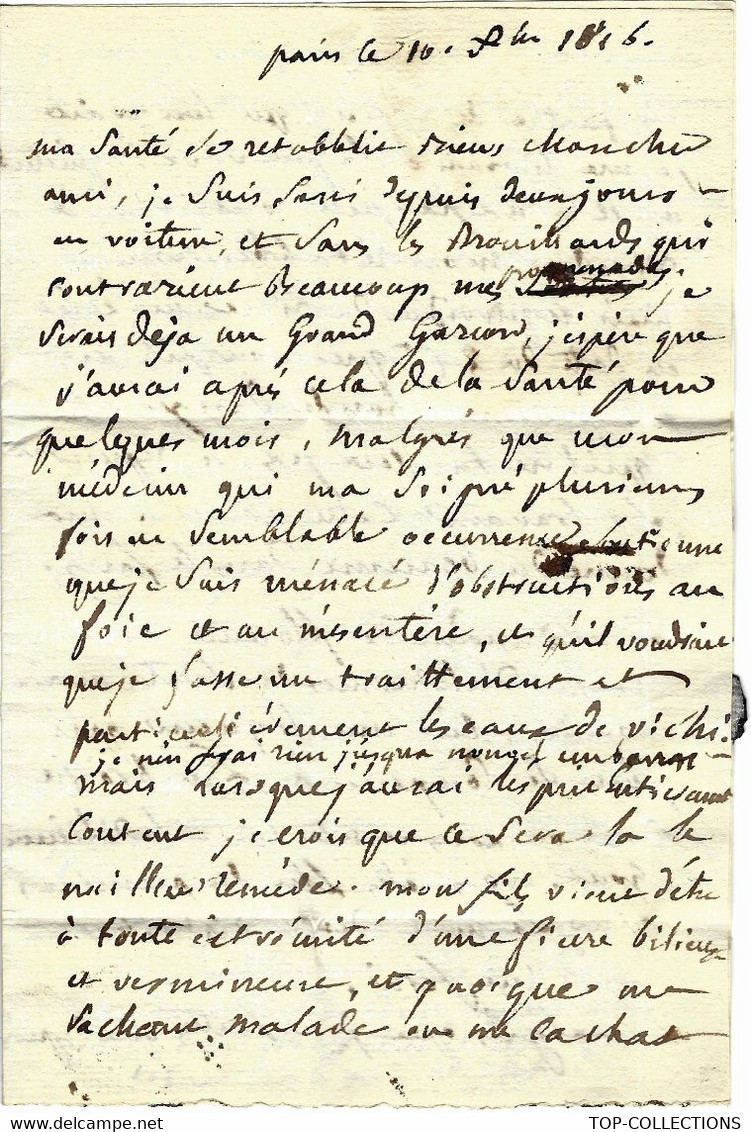 paris le 10. Xbre 1816.
ma santé se retabblit mieux mon cher
ami, je suis sorti depuis deux jours
en voiture, et sans les Brouillards qui
contrarient Beaucoup mes promenades je
serais deja un Grand Garcon, j'espère que
j'aurai après cela de la santé pour
quelques mois, malgrés que mon
médecin qui ma soigné plusieurs
fois en semblable occurrence soutienne
que je suis ménacé d'obstructions au
foie et au mésentére, et qu'il voudrait
que je fasse un traittement et
particulièrement les eaux de vichi.
je n'en ferai rien jusqua nouvel embarras
mais Lorsque j'aurai l'esprit
Content je crois que ce sera la le
meilleur reméde. mon fils vient d'être
à toute extrémité d'une fievre bilieuse
et vermineuse, et quoique me
sachant malade on me cachat
TOP-COLLECTIONS